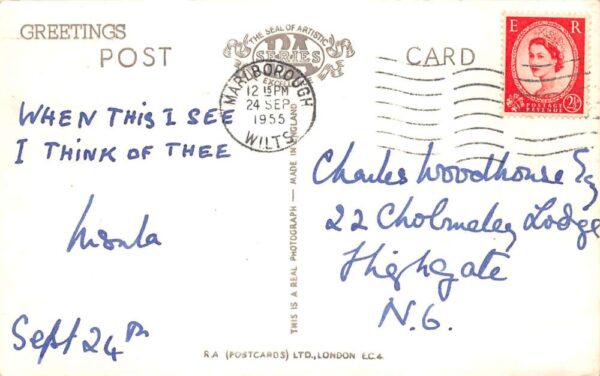 GREETINGS
POST CARD
THE SEAL OF ARTISTIC
RA
SERIES
E R
POSTAGE
REVENUE
2½
MARLBOROUGH
12 15 PM
24 SEP
1955
WILTS
WHEN THIS I SEE
I THINK OF THEE
Sept 24th
THIS IS A REAL PHOTOGRAPH — MADE IN ENGLAND
Charles Woodhouse Esq
22 Cholmeley Lodge
Highgate
N.6.
R.A (POSTCARDS) LTD., LONDON E.C.4